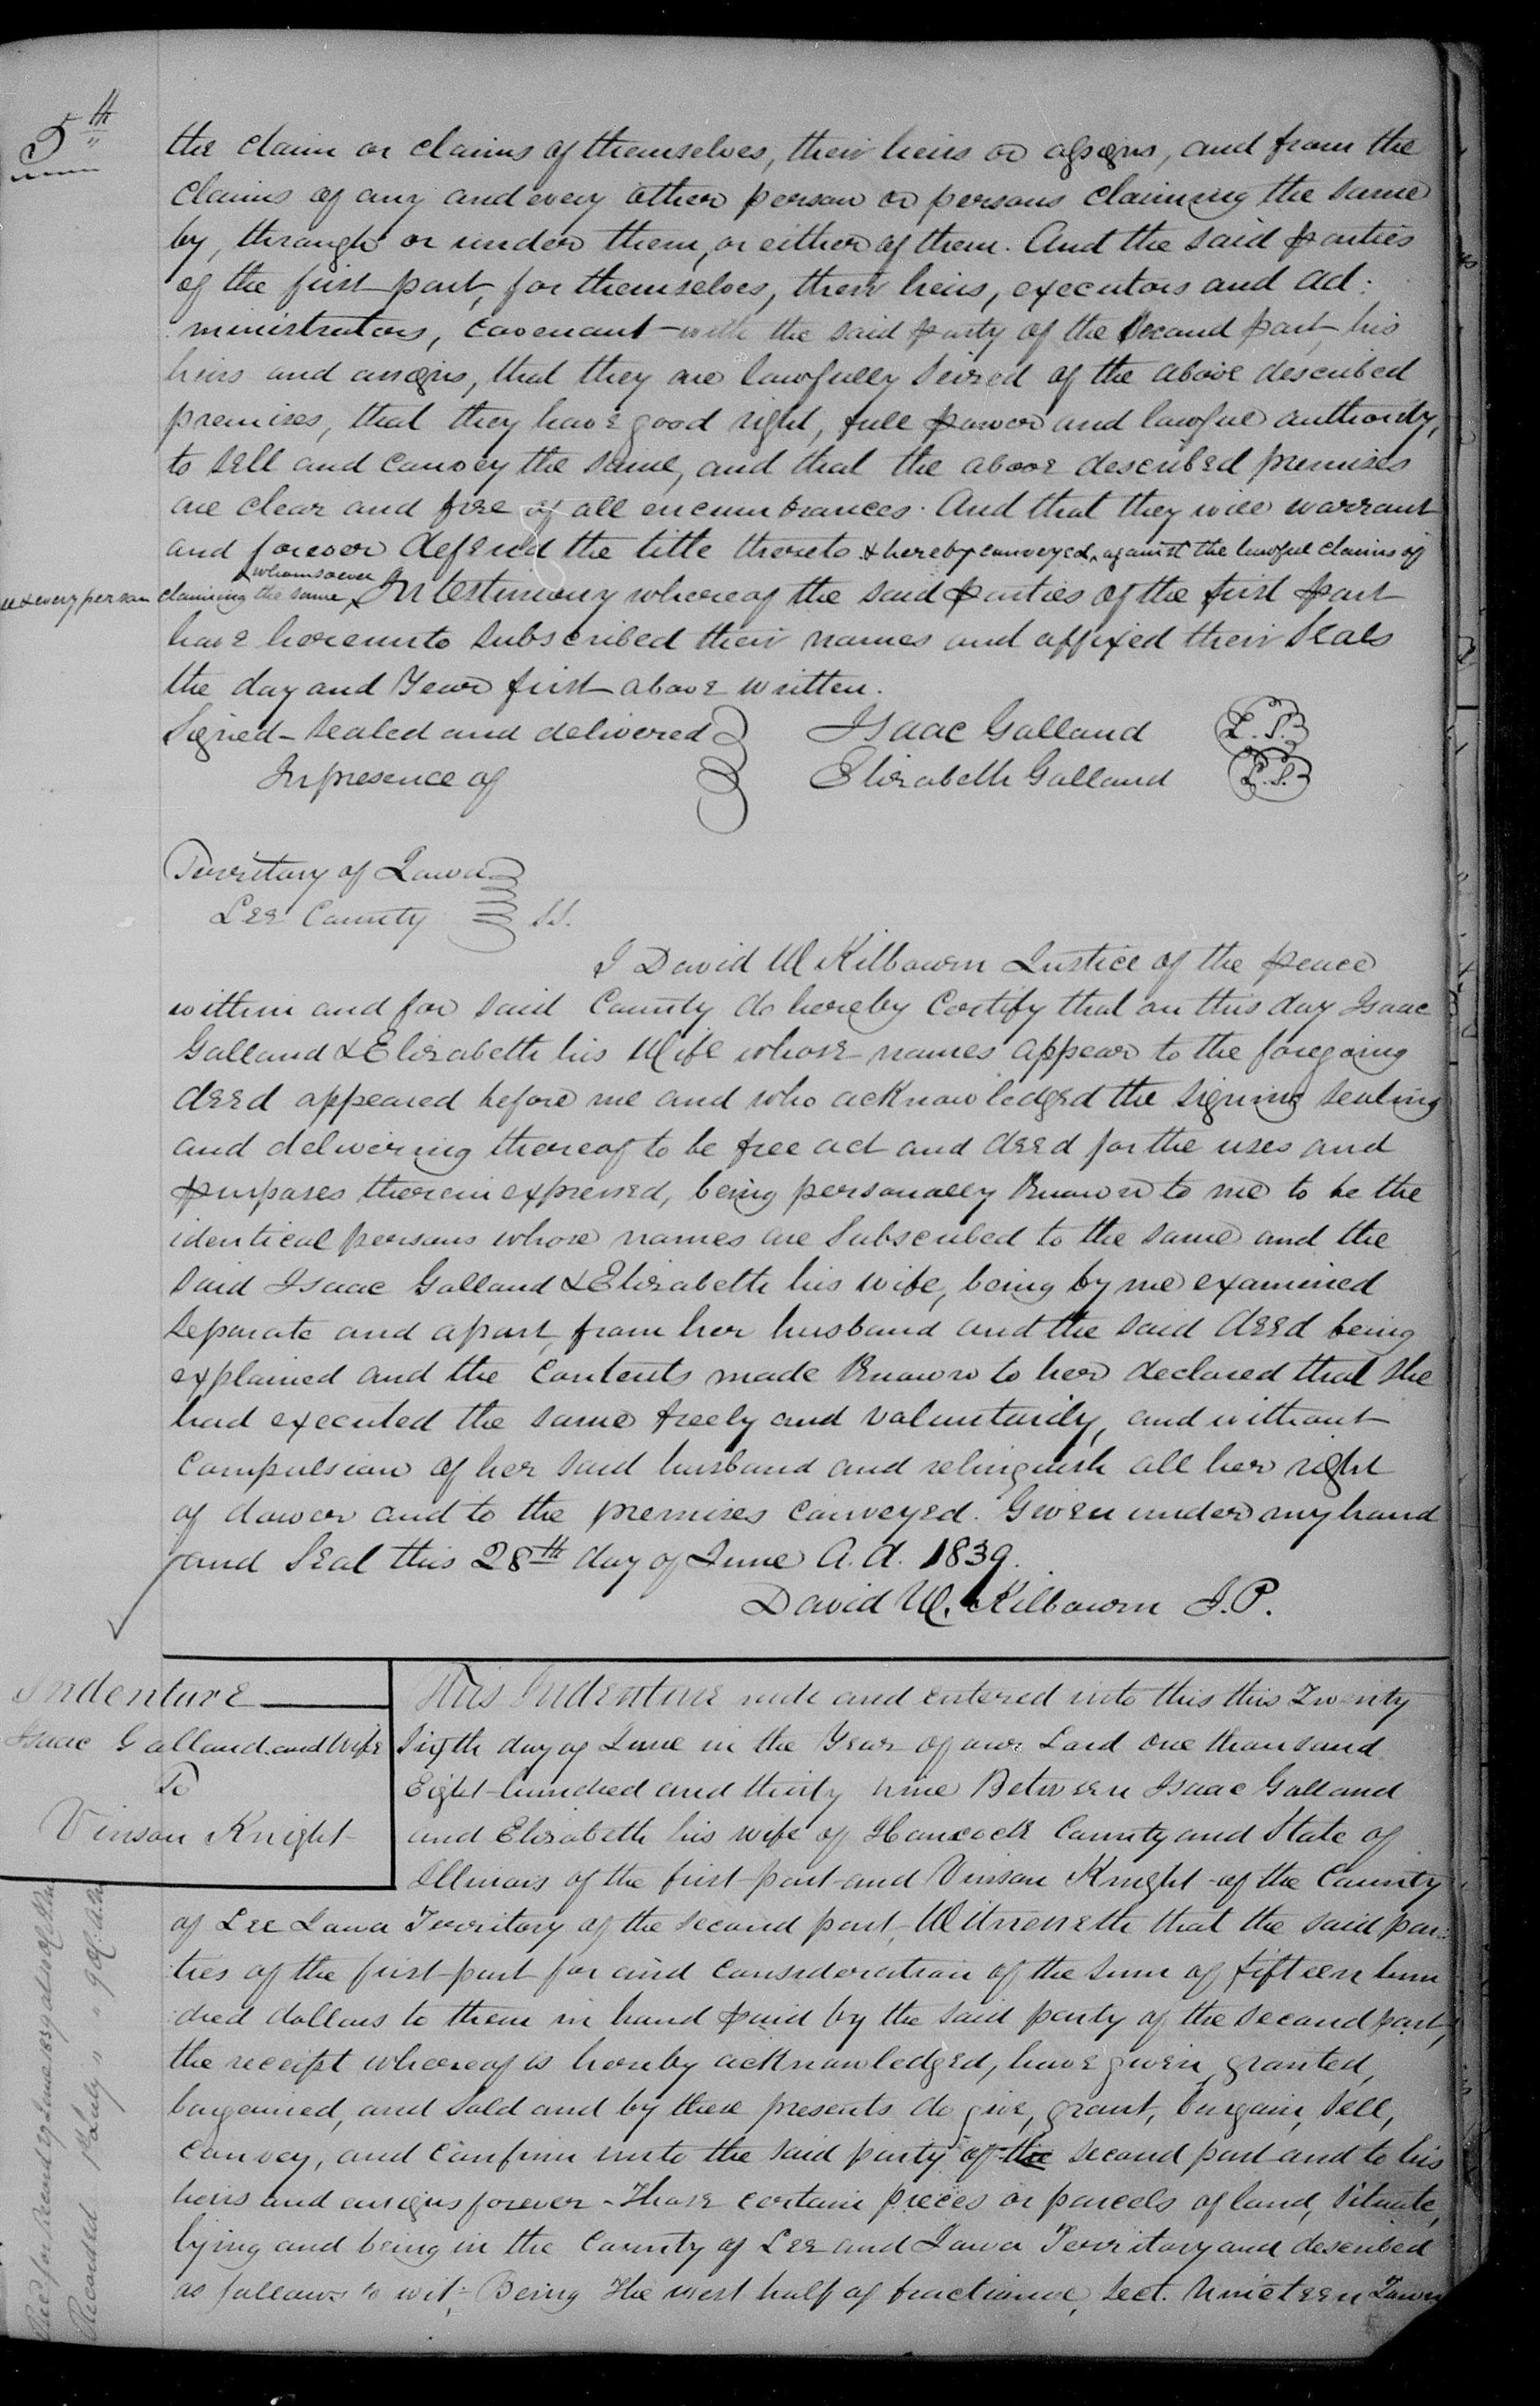 5th
the claim or claims of themselves, their heirs or assigns, and from the
claims of any and every other person or persons claiming the same
by, through or under them, or either of them. And the said parties
of the first part, for themselves, their heirs, executors and ad:
ministrators, covenant with the said party of the Second part, his
heirs and assigns, that they are lawfully Seized of the above described
premises, that they have good right, full power and lawful authority,
to sell and convey the same, and that the above described premises
are clear and free of all encumbrances. And that they will warrant
and forever defend the title thereto & hereby conveyed, against the lawful claims of
& every person whomsoever claiming the same, In testimony whereof the said parties of the first part
have hereunto subscribed their names and affixed their Seals
the day and Year first above written.
Signed Sealed and delivered Isaac Galland L.S.
In presence of Elizabeth Galland L.S.
Territory of Iowa
Lee County SS.
I David W Kilbourn Justice of the peace
within and for said County do hereby Certify that on this day Isaac
Galland & Elizabeth his Wife whose names appear to the foregoing
deed appeared before me and who acknowledged the signing sealing
and delivering thereof to be free act and deed for the uses and
purposes therein expressed, being personally Known to me to be the
identical persons whose names are Subscribed to the same and the
said Isaac Galland & Elizabeth his wife, being by me examined
separate and apart, from her husband and the said deed being
explained and the Contents made Known to her declared that she
had executed the same freely and voluntarily, and without
Compulsion of her said husband and relinquish all her right
of dower and to the premises conveyed. Given under my hand
and Seal this 28th day of June A.d. 1839.
David W. Kilbourn J.P.
Indenture
Isaac Galland and Wife
To
Vinson Knight
This Indenture made and entered into this this Twenty
Sixth day of June in the Year of our Lord one thousand
Eight hundred and thirty nine Between Isaac Galland
and Elizabeth his wife of Hancock County and State of
Illinois of the first part and Vinson Knight of the County
of Lee Iowa Territory of the second part, Witnesseth that the said par:
ties of the first part for and Consideration of the sum of fifteen hun
dred dollars to them in hand paid by the said party of the second part,
the receipt whereof is hereby acknowledged, have given, granted,
bargained, and sold and by these presents do give, grant, bargain, sell,
convey, and confirm unto the said party of the second part and to his
heirs and assigns forever - Those certain pieces or parcels of land, situate,
lying and being in the County of Lee and Iowa Territory and described
as follows to wit; Being The west half of fractional, sect. Nineteen Town
Rec'd for Record 29 June 1839 at
Recorded 1st July " " 9